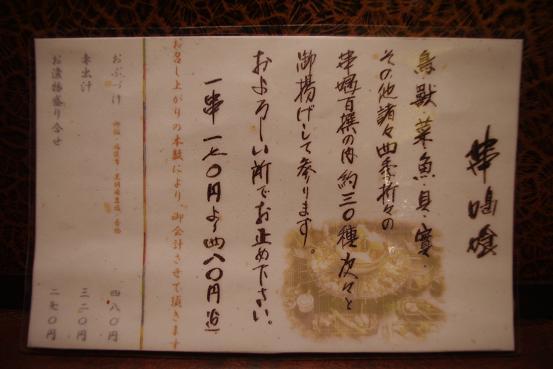 串噛喰
鳥・獣・菜・魚・貝・實・
その他諸々四季折々の
串噛百撰の内 約三〇種次々と
御揚げして参ります。
およろしい所でお止め下さい。
一串 一七〇円より四八〇円迄
お召し上がりの本数により、御会計させて頂きます
おぶづけ
四八〇円
赤出汁 三二〇円
お漬物盛り合せ 二七〇円